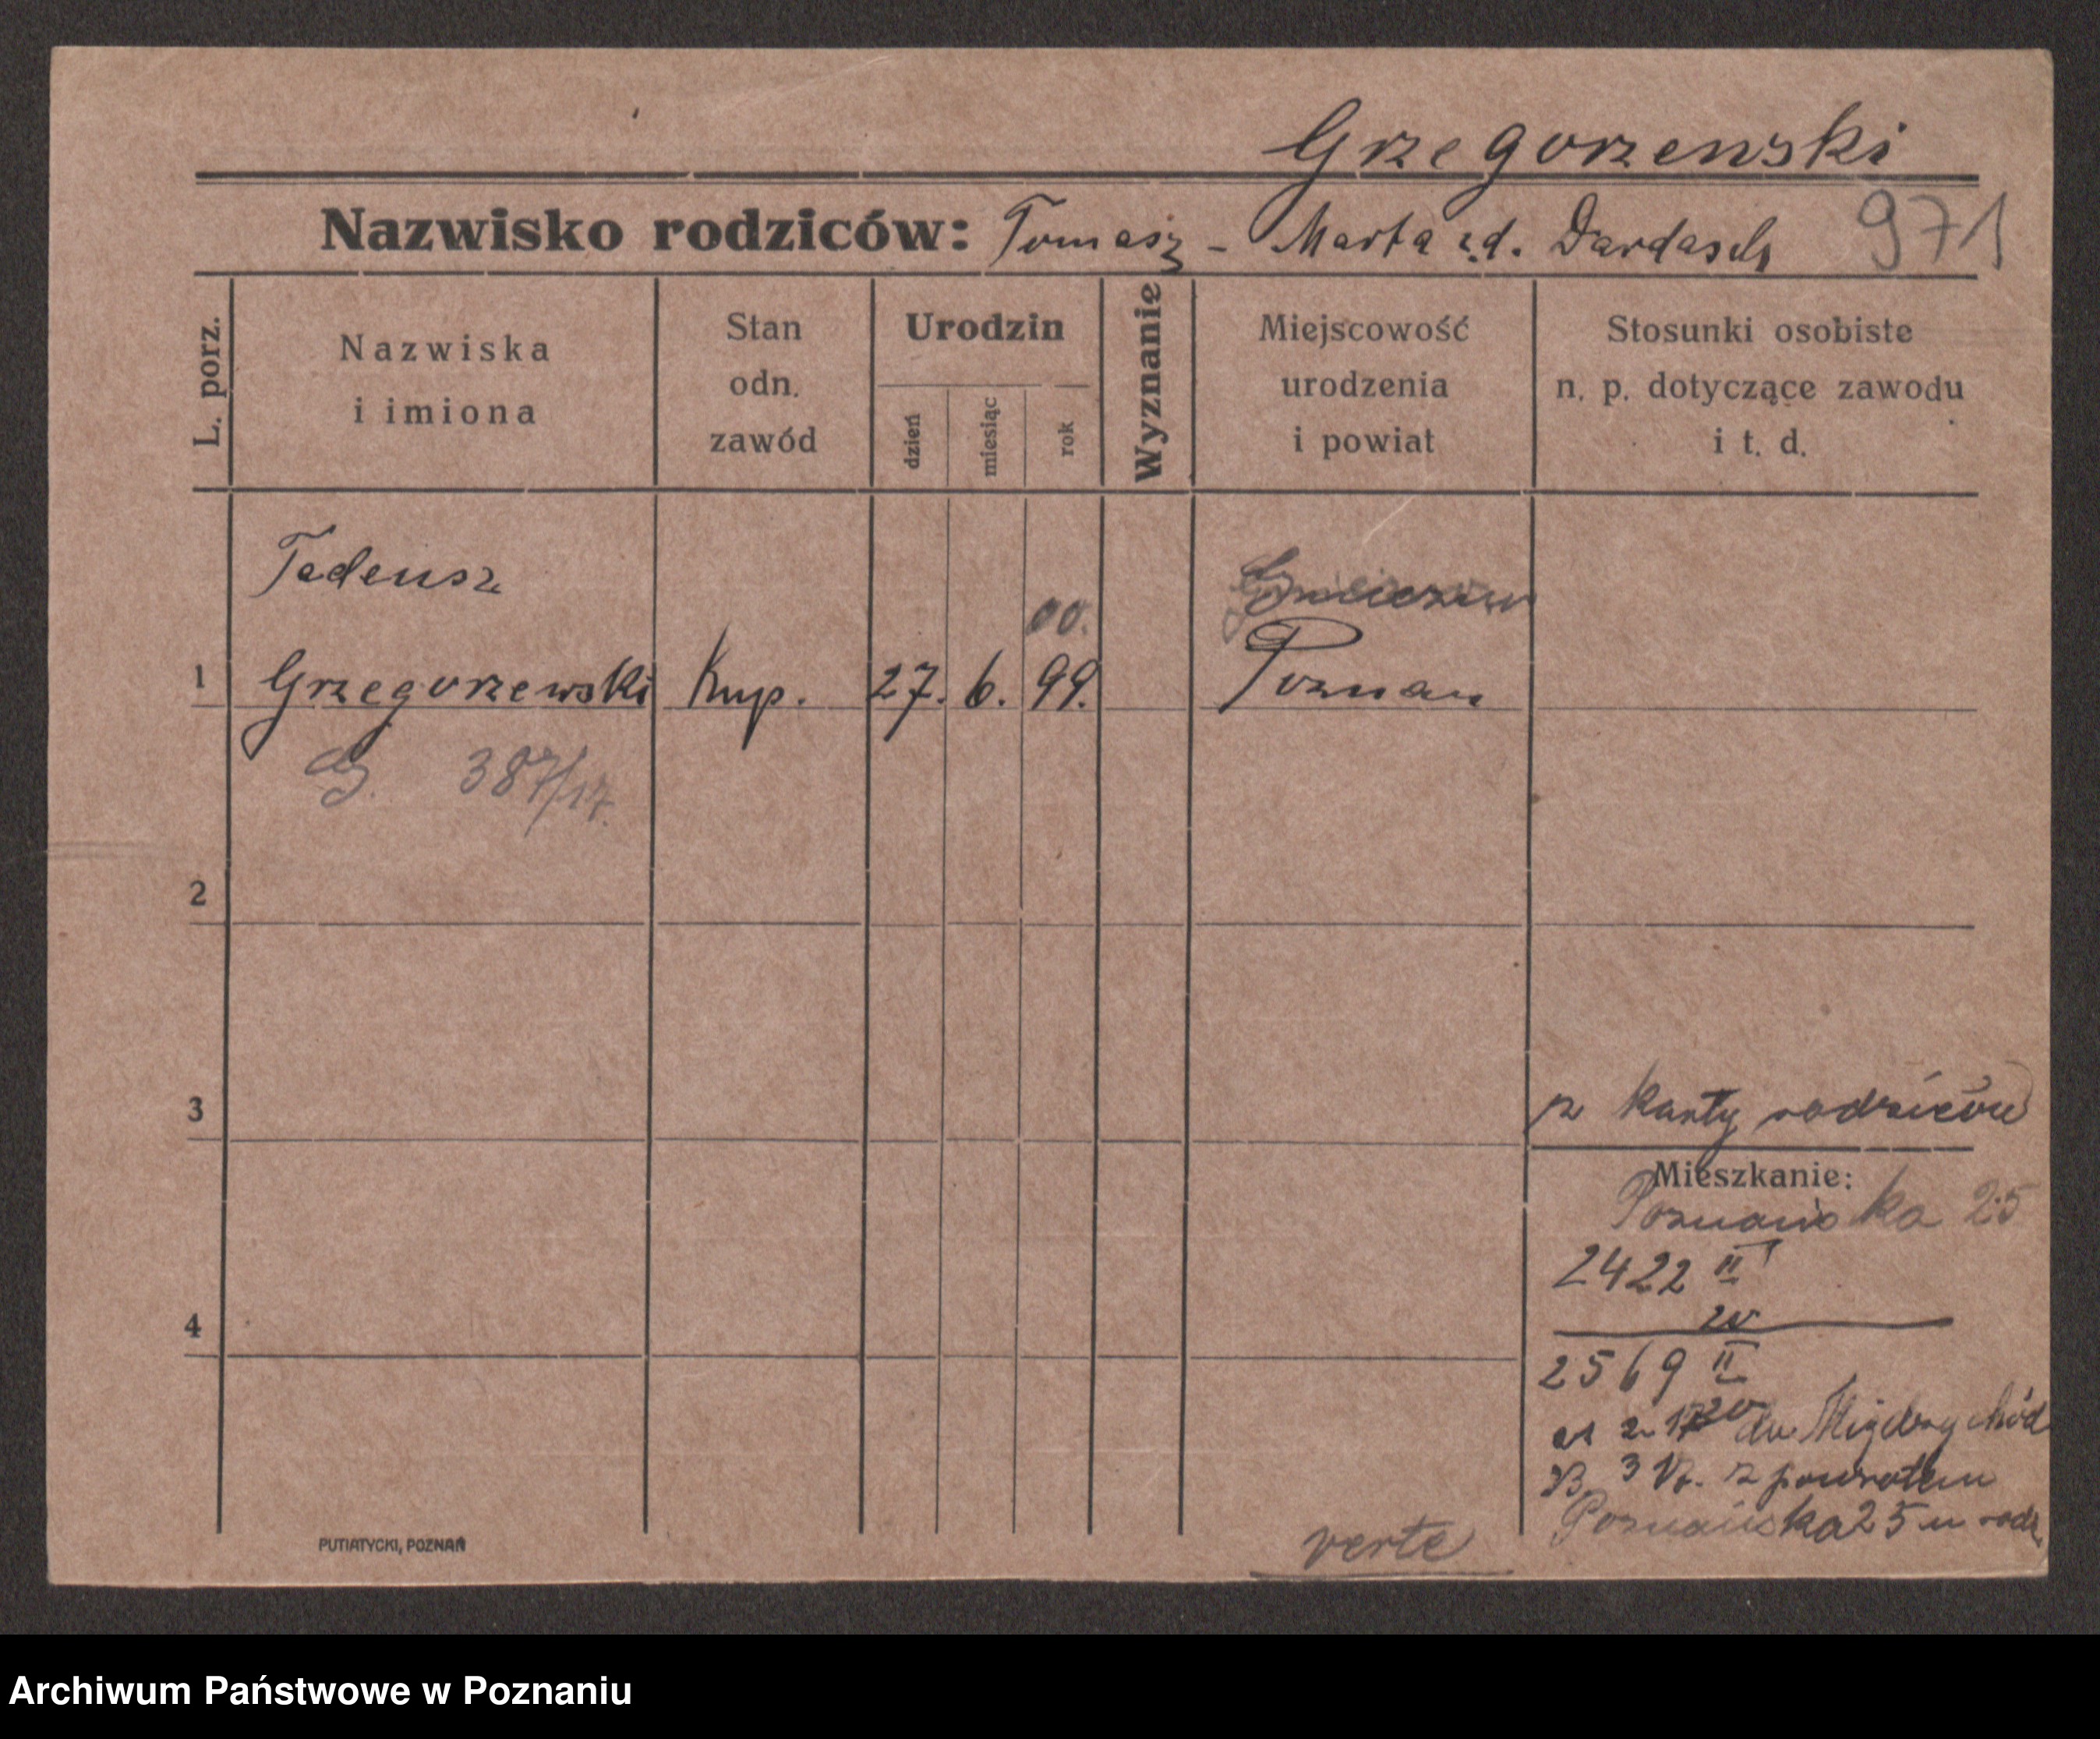 Grzegorzewski
Nazwisko rodziców: Tomasz - Marta z d. Dardasch 971
L. porz.
Nazwiska
i imiona
Stan
odn.
zawód
Urodzin
dzień
miesiąc
rok
Wyznanie
Miejscowość
urodzenia
i powiat
Stosunki osobiste
n. p. dotyczące zawodu
i t. d.
Tadeusz
00.
1 Grzegorzewski Kup. 27. 6. 99. Poznan
G. 387/17.
2
3
z karty rodziców
Mieszkanie:
Poznańska 25
2422 II
20
2569 II
20 Międzychód
3 z powrotem
Poznańska 25 u rodz
4
verte
PUTIATYCKI, POZNAŃ
Archiwum Państwowe w Poznaniu